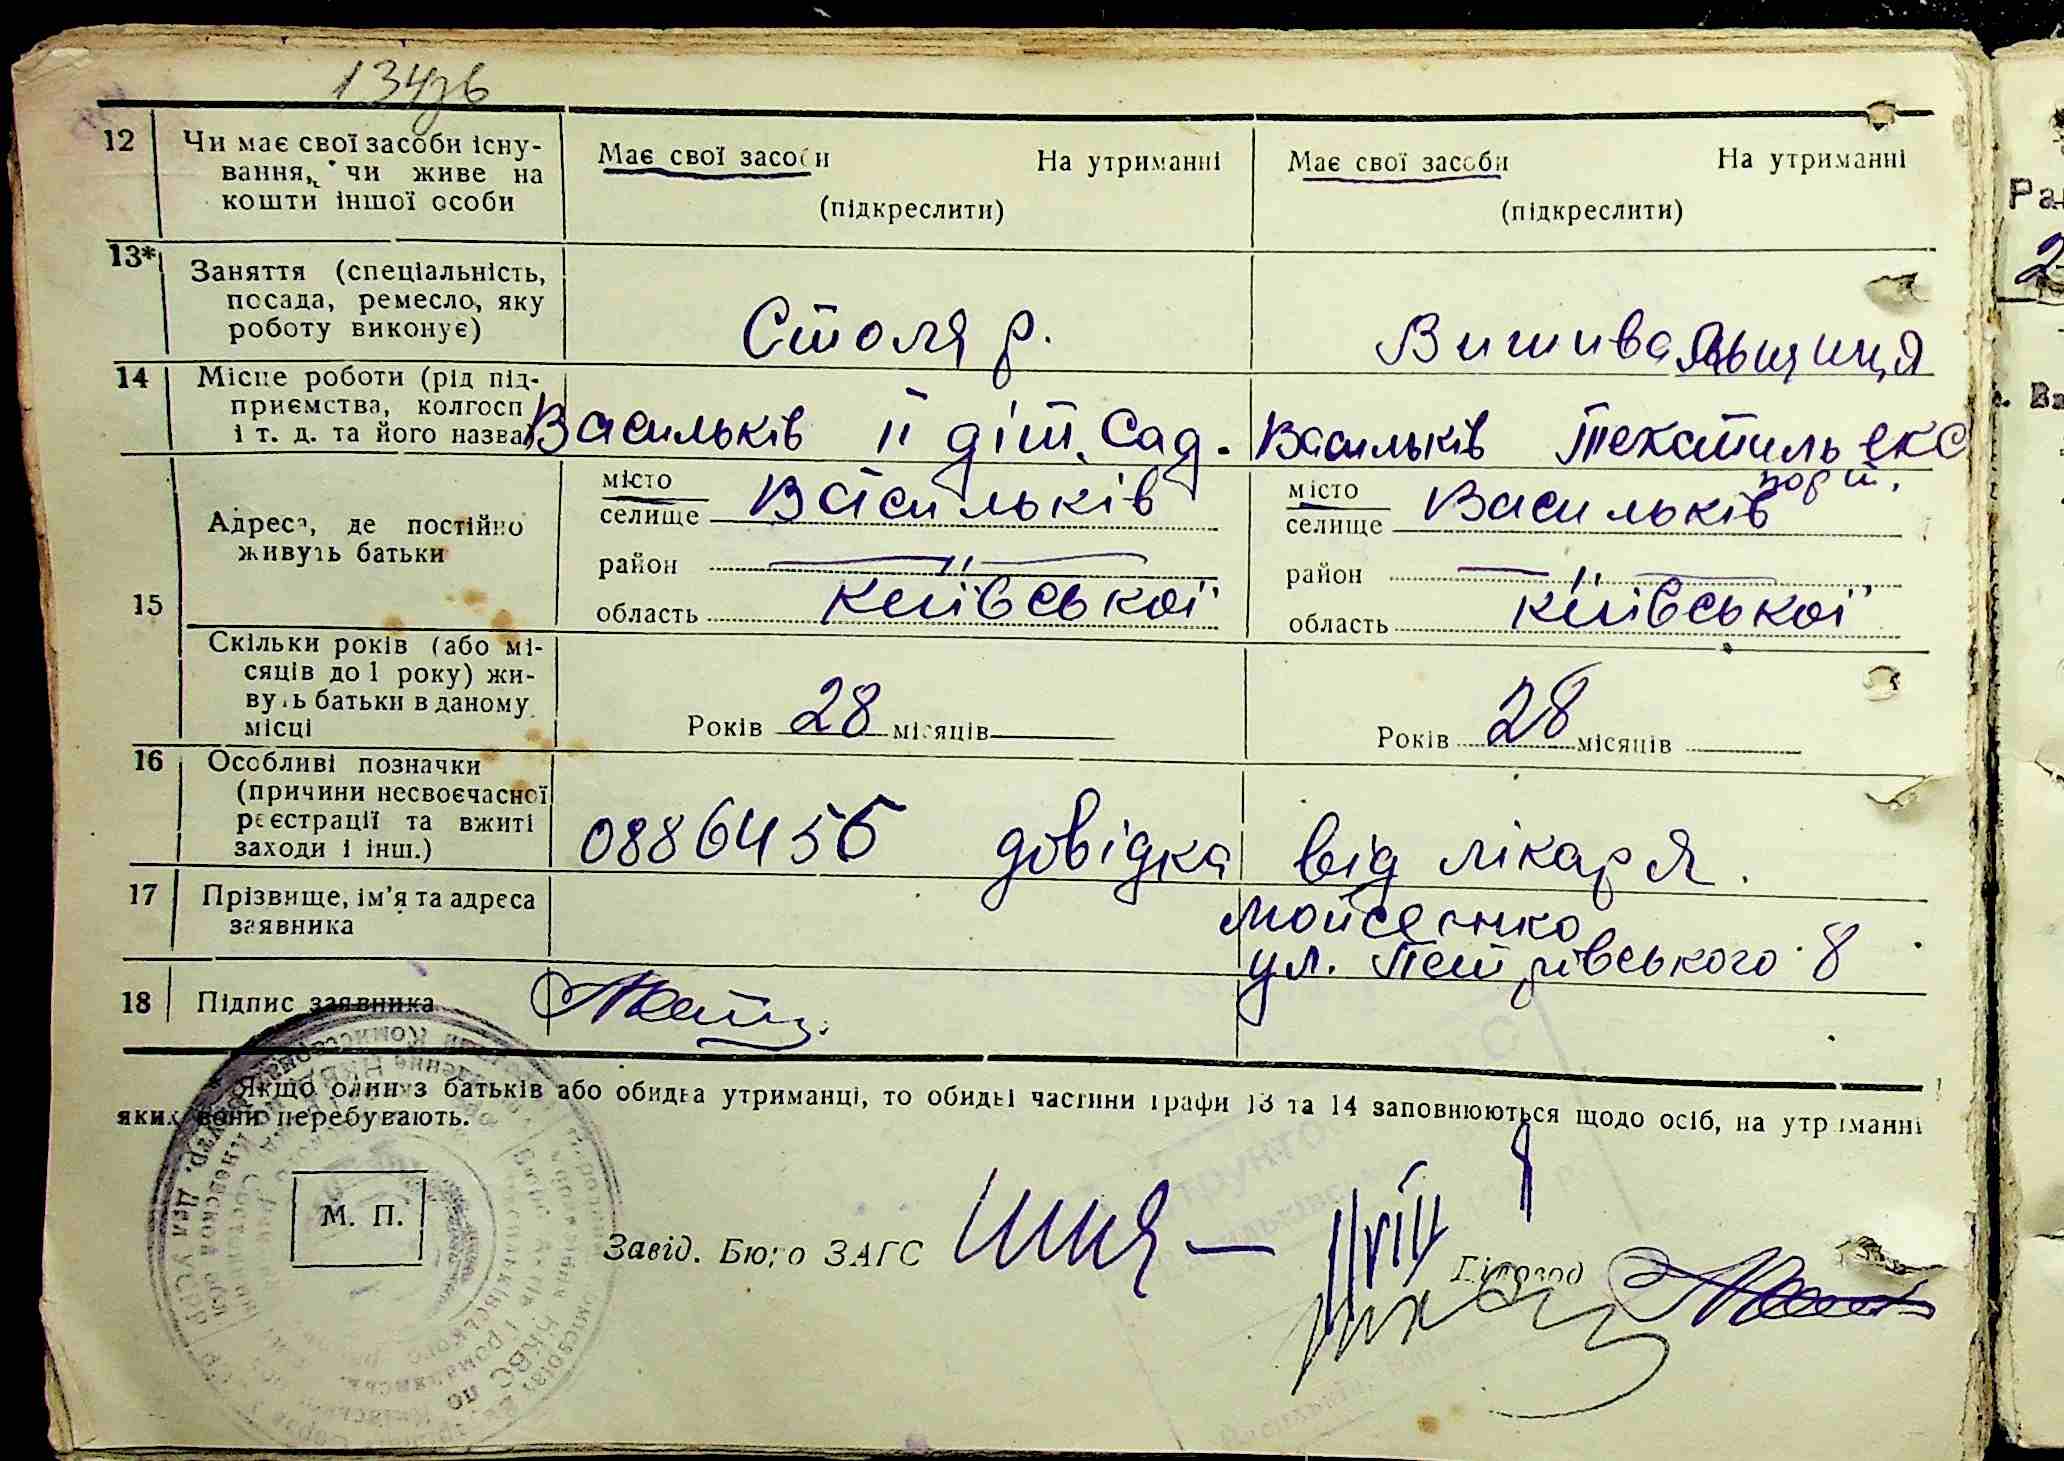 134зв
12 Чи має свої засоби існу-
вання, чи живе на
кошти іншої особи
Має свої засоби На утриманні
(підкреслити)
Має свої засоби На утриманні
(підкреслити)
13* Заняття (спеціальність,
посада, ремесло, яку
роботу виконує)
Столяр.
Вишивальщиця
14 Місце роботи (рід під-
приємства, колгосп
і т. д. та його назва)
Васильків ІІ діт. Сад.
Васильків Текстиль екс
порт.
15 Адреса, де постійно
живуть батьки
місто
селище Васильків
район — „ —
область Київської
місто
селище Васильків
район — „ —
область Київської
Скільки років (або мі-
сяців до 1 року) жи-
вуть батьки в даному
місці
Років 28 місяців
Років 28 місяців
16 Особливі позначки
(причини несвоєчасної
реєстрації та вжиті
заходи і інш.)
0886455 довідка від лікаря.
17 Прізвище, ім'я та адреса
заявника
Мойсеенко
ул. Петрівського 8
18 Підпис заявника
Якщо один з батьків або обидва утриманці, то обидві частини графи 13 та 14 заповнюються щодо осіб, на утриманні
яких вони перебувають.
М. П.
Завід. Бюро ЗАГС
Діловод